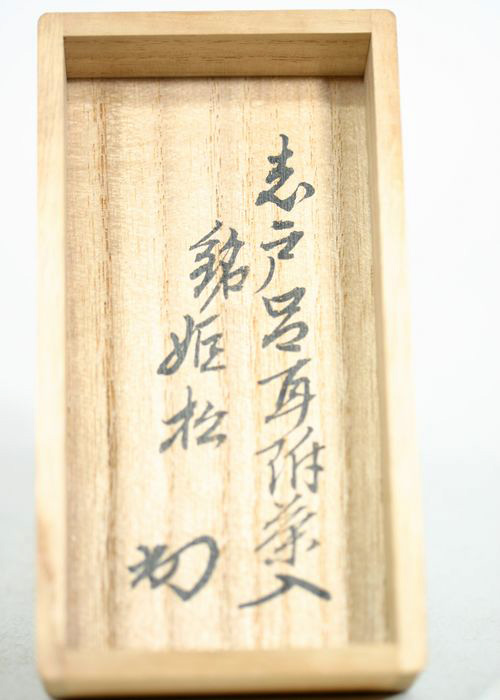 志戸呂耳附茶入
銘姫松